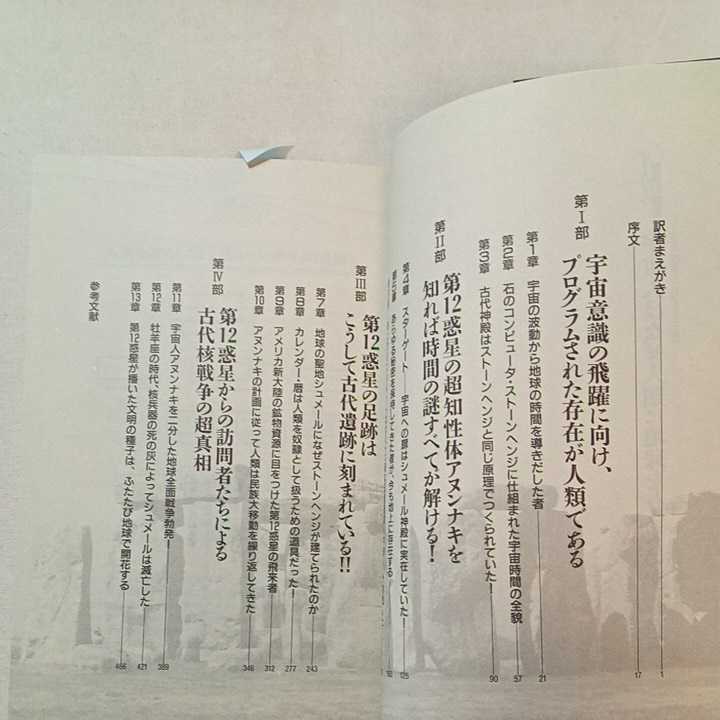 訳者まえがき 1
序文 17
第Ⅰ部
宇宙意識の飛躍に向け、
プログラムされた存在が人類である
第1章 宇宙の波動から地球の時間を導きだした者 21
第2章 石のコンピュータ・ストーンヘンジに仕組まれた宇宙時間の全貌 57
第3章 古代神殿はストーンヘンジと同じ原理でつくられていた! 90
第Ⅱ部
第12惑星の超知性体アヌンナキを
知れば時間の謎すべてが解ける!
第4章 スターゲート――宇宙への扉はシュメール神殿に実在していた! 125
第Ⅲ部
第12惑星の足跡は
こうして古代遺跡に刻まれている!!
第7章 地球の聖地シュメールになぜストーンヘンジが建てられたのか 243
第8章 カレンダー・暦は人類を奴隷として扱うための道具だった! 277
第9章 アメリカ新大陸の鉱物資源に目をつけた第12惑星の飛来者 312
第10章 アヌンナキの計画に従って人類は民族大移動を繰り返してきた 346
第Ⅳ部
第12惑星からの訪問者たちによる
古代核戦争の超真相
第11章 宇宙人アヌンナキを二分した地球全面戦争勃発! 389
第12章 牡羊座の時代、核兵器の死の灰によってシュメールは滅亡した 421
第13章 第12惑星が播いた文明の種子は、ふたたび地球で開花する 466
参考文献